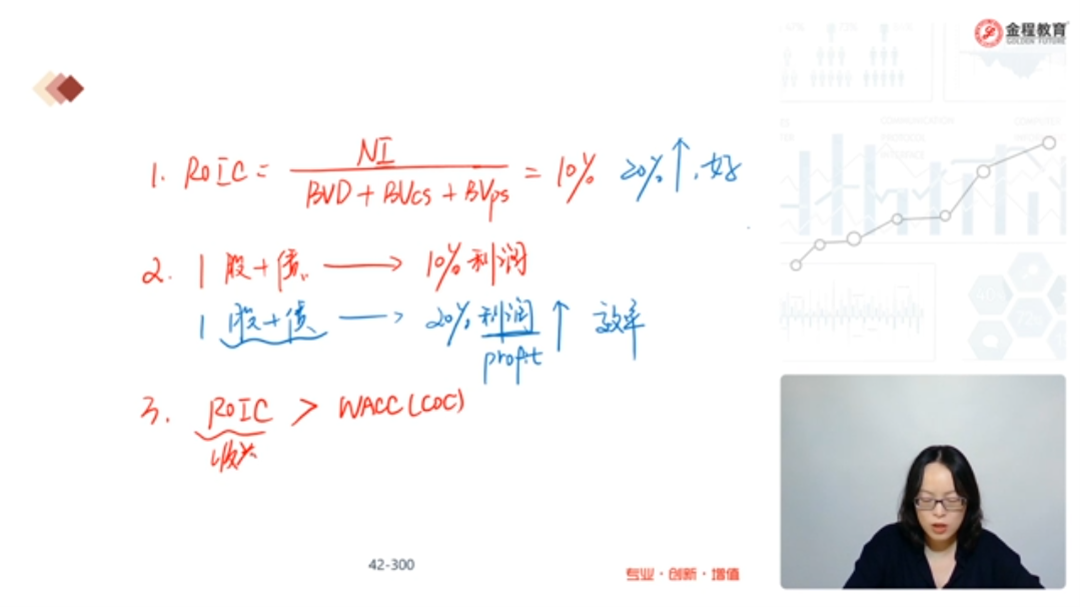 金程教育
GOLDEN FUTURE
1. ROIC = NI / BVD + BVcs + BVps = 10% 20%↑,好
2. 1 股+债 → 10%利润
1 股+债 → 20%利润↑ 效率
profit
3. ROIC > WACC(COC)
收益
42-300
专业·创新·增值